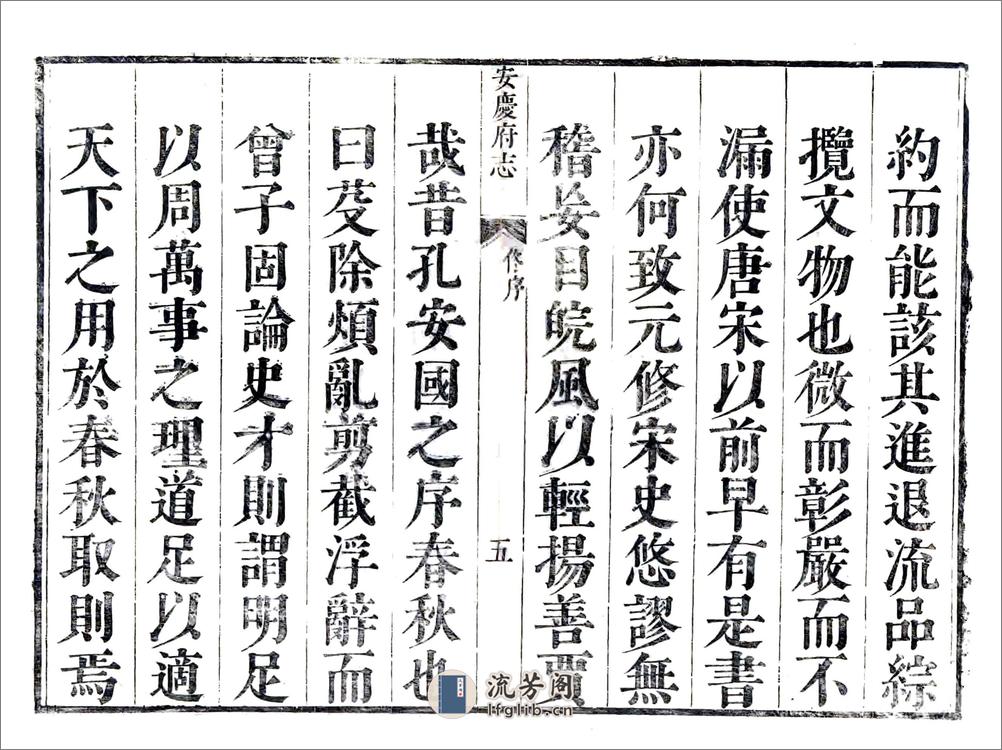 約而能該其進退流品綜
攬文物也微而彰嚴而不
漏使唐宋以前早有是書
亦何致元修宋史悠謬無
稽妄目皖風以輕揚善賈
安慶府志
佟序
五
哉昔孔安國之序春秋也
曰芟除煩亂剪截浮辭而
曾子固論史才則謂明足
以周萬事之理道足以適
天下之用於春秋取則焉
流芳阁
lfglib.com